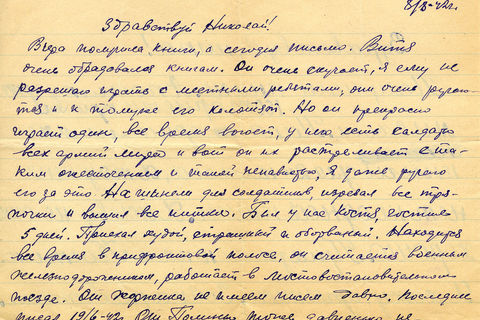 8/8-42г.
Здравствуй Николай!
Вчера получила книги, а сегодня письмо. Витя
очень обрадовался книгам. Он очень скучает, я ему не
разрешаю играть с местными ребятами, они очень ругают-
ся и к тому же его колотят. Но он прекрасно
играет один, все время воюет, у него есть солдаты
всех армий мира и вот он их расстреливает с та-
ким ожесточением и такой ненавистью, я даже ругаю
его за это. На шинели для солдатиков, изрезал все тря-
почки и вышил все нитки. Был у нас Костя, гостил
5 дней. Приехал худой, страшный и оборванный. Находится
все время в прифронтовой полосе, он считается военным
железнодорожником, работает в мостовостановительном
поезде. От Жоржика не имеем писем давно, последнее
писал 19/6-42. От Полины тоже давненько не